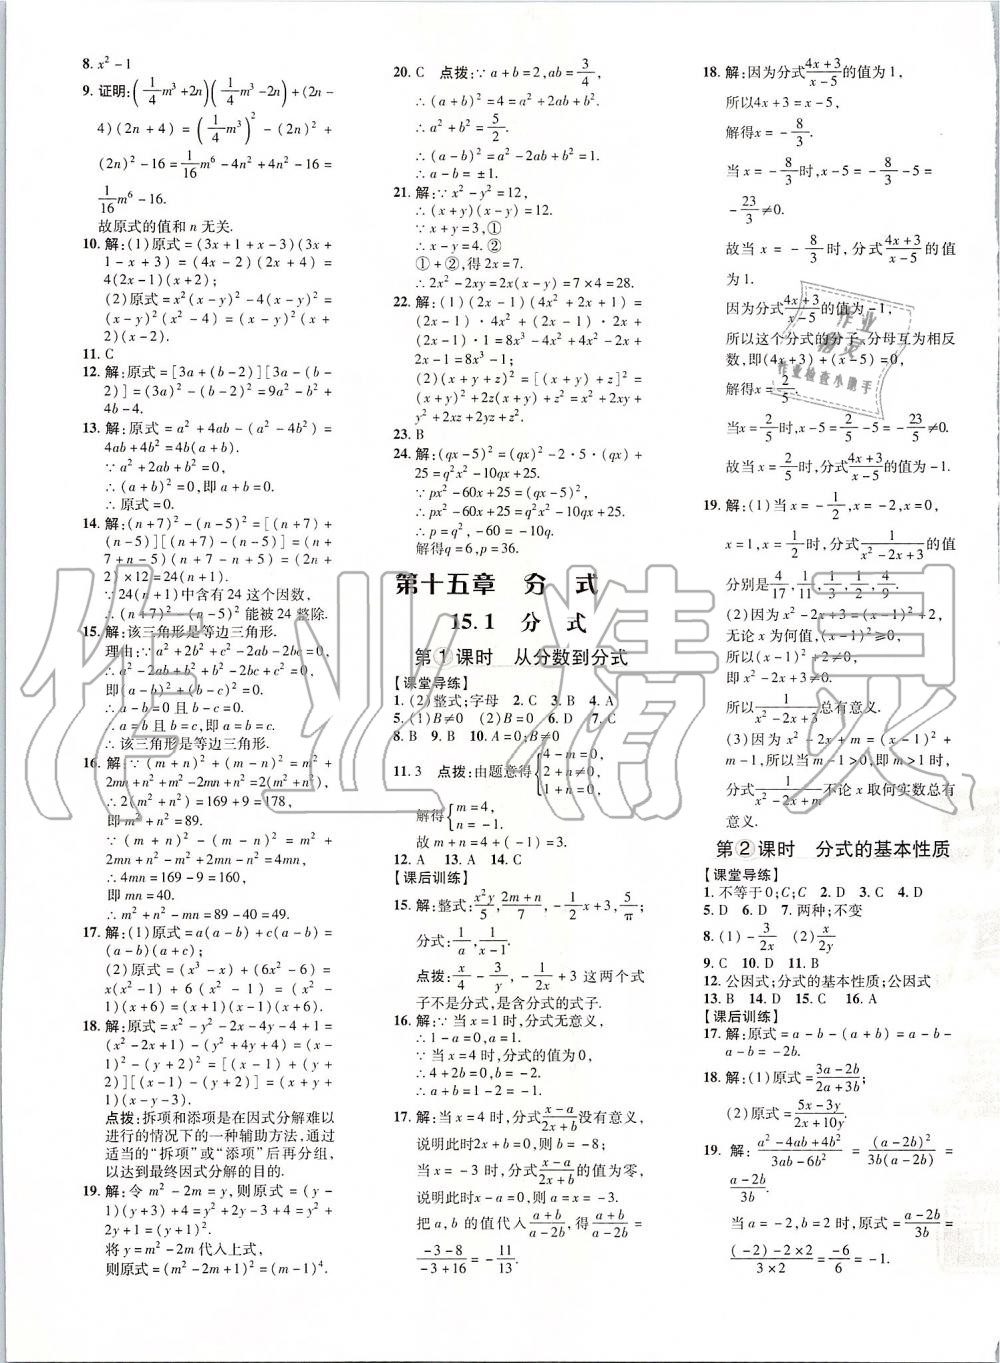 8. x²-1
9. 证明:(1/4m³+2n)(1/4m³-2n)+(2n-
4)(2n+4)=(1/4m³)²-(2n)²+
(2n)²-16=1/16m⁶-4n²+4n²-16=
1/16m⁶-16.
故原式的值和 n 无关.
10. 解:(1)原式=(3x+1+x-3)(3x+
1-x+3)=(4x-2)(2x+4)=
4(2x-1)(x+2);
(2)原式=x²(x-y)²-4(x-y)²=
(x-y)²(x²-4)=(x-y)²(x+
2)(x-2).
11. C
12. 解:原式=[3a+(b-2)][3a-(b-
2)]=(3a)²-(b-2)²=9a²-b²+
4b-4.
13. 解:原式=a²+4ab-(a²-4b²)=
4ab+4b²=4b(a+b).
∵a²+2ab+b²=0,
∴(a+b)²=0,即 a+b=0.
∴原式=0.
14. 解:(n+7)²-(n-5)²=[(n+7)+
(n-5)][(n+7)-(n-5)]=(n+
7+n-5)(n+7-n+5)=(2n+
2)×12=24(n+1).
∵24(n+1)中含有 24 这个因数,
∴(n+7)²-(n-5)²能被 24 整除.
15. 解:该三角形是等边三角形.
理由:∵a²+2b²+c²-2ab-2bc=0,
∴a²-2ab+b²+c²-2bc+b²=0,
即(a-b)²+(b-c)²=0.
∴a-b=0 且 b-c=0.
∴a=b 且 b=c,即 a=b=c.
∴该三角形是等边三角形.
16. 解:∵(m+n)²+(m-n)²=m²+
2mn+n²+m²-2mn+n²=2(m²+n²),
∴2(m²+n²)=169+9=178,
即 m²+n²=89.
∵(m+n)²-(m-n)²=m²+
2mn+n²-m²+2mn-n²=4mn,
∴4mn=169-9=160,
即 mn=40.
∴m²+n²-mn=89-40=49.
17. 解:(1)原式=a(a-b)+c(a-b)=
(a-b)(a+c);
(2)原式=(x³-x)+(6x²-6)=
x(x²-1)+6(x²-1)=(x²-
1)(x+6)=(x+1)(x-1)(x+6).
18. 解:原式=x²-y²-2x-4y-4+1=
(x²-2x+1)-(y²+4y+4)=(x-
1)²-(y+2)²=[(x-1)+(y+
2)][(x-1)-(y+2)]=(x+y+
1)(x-y-3).
点拨:拆项和添项是在因式分解难以
进行的情况下的一种辅助方法,通过
适当的“拆项”或“添项”后再分组,
以达到最终因式分解的目的.
19. 解:令 m²-2m=y,则原式=(y-
1)(y+3)+4=y²+2y-3+4=y²+
2y+1=(y+1)².
将 y=m²-2m 代入上式,
则原式=(m²-2m+1)²=(m-1)⁴.
20. C 点拨:∵a+b=2,ab=3/4,
∴(a+b)²=4=a²+2ab+b².
∴a²+b²=5/2.
∴(a-b)²=a²-2ab+b²=1.
∴a-b=±1.
21. 解:∵x²-y²=12,
∴(x+y)(x-y)=12.
∵x+y=3,①
∴x-y=4.②
①+②,得 2x=7.
∴2x²-2xy=2x(x-y)=7×4=28.
22. 解:(1)(2x-1)(4x²+2x+1)=
(2x-1)·4x²+(2x-1)·2x+
(2x-1)·1=8x³-4x²+4x²-2x+
2x-1=8x³-1;
(2)(x+y+z)²=[(x+y)+z]²=
(x+y)²+2z(x+y)+z²=x²+2xy+
y²+2xz+2yz+z².
23. B
24. 解:∵(qx-5)²=(qx)²-2·5·(qx)+
25=q²x²-10qx+25.
∵px²-60x+25=(qx-5)²,
∴px²-60x+25=q²x²-10qx+25.
∴p=q²,-60=-10q.
解得 q=6,p=36.
第十五章 分 式
15.1 分 式
第①课时 从分数到分式
【课堂导练】
1. (2)整式;字母 2. C 3. B 4. A
5. (1)B≠0 (2)B=0 6. D 7. C
8. B 9. B 10. A=0;B≠0
11. 3 点拨:由题意得{4-m=0, 2+n≠0, 1+n=0,
解得{m=4, n=-1.
故 m+n=4+(-1)=3.
12. A 13. A 14. C
【课后训练】
15. 解:整式:x²y/5,2m+n/7,-1/2x+3,5/π;
分式:1/a,1/x-1.
点拨:x/4-3/y,-1/2x+3 这两个式
子不是分式,是含分式的式子.
16. 解:∵当 x=1 时,分式无意义,
∴1-a=0,a=1.
∵当 x=4 时,分式的值为 0,
∴4+2b=0,b=-2.
∴a+b=1-2=-1.
17. 解:当 x=4 时,分式x-a/2x+b没有意义,
说明此时2x+b=0,则 b=-8;
当 x=-3 时,分式x-a/2x+b的值为零,
说明此时x-a=0,则 a=x=-3.
把 a,b 的值代入a+b/a-2b,得a+b/a-2b=
-3-8/-3+16=-11/13.
18. 解:因为分式4x+3/x-5的值为 1,
所以4x+3=x-5,
解得x=-8/3.
当 x=-8/3时,x-5=-8/3-5=
-23/3≠0.
故当 x=-8/3时,分式4x+3/x-5的值
为1.
因为分式4x+3/x-5的值为-1,
所以这个分式的分子、分母互为相反
数,即(4x+3)+(x-5)=0,
解得x=2/5.
当x=2/5时,x-5=2/5-5=-23/5≠0.
故当x=2/5时,分式4x+3/x-5的值为-1.
19. 解:(1)当 x=-1/2,x=-2,x=0,
x=1,x=1/2时,分式1/x²-2x+3的值
分别是4/17,1/11,1/3,1/2,4/9.
(2)因为 x²-2x+3=(x-1)²+2,
无论 x 为何值,(x-1)²≥0,
则 x²-2x+3>0,
即 x²-2x+3≠0.
所以1/x²-2x+3总有意义.
(3)因为 x²-2x+m=(x-1)²+
m-1,所以当 m-1>0,即 m>1时,
分式1/x²-2x+m不论 x 取何实数总有
意义.
第②课时 分式的基本性质
【课堂导练】
1. 不等于 0;C;C 2. D 3. C 4. D
5. D 6. D 7. 两种;不变
8. (1)-3/2x (2)x/2y
9. C 10. D 11. B
12. 公因式;分式的基本性质;公因式
13. B 14. D 15. C 16. A
【课后训练】
17. 解:原式=a-b-(a+b)=a-b-
a-b=-2b.
18. 解:(1)原式=3a-2b/2a+3b;
(2)原式=5x-3y/2x+10y.
19. 解:a²-4ab+4b²/3ab-6b²=(a-2b)²/3b(a-2b)=
a-2b/3b.
当 a=-2,b=2 时,原式=a-2b/3b=
(-2)-2×2/3×2=-6/6=-1.
作业精灵
作业
精灵
作业检查小助手